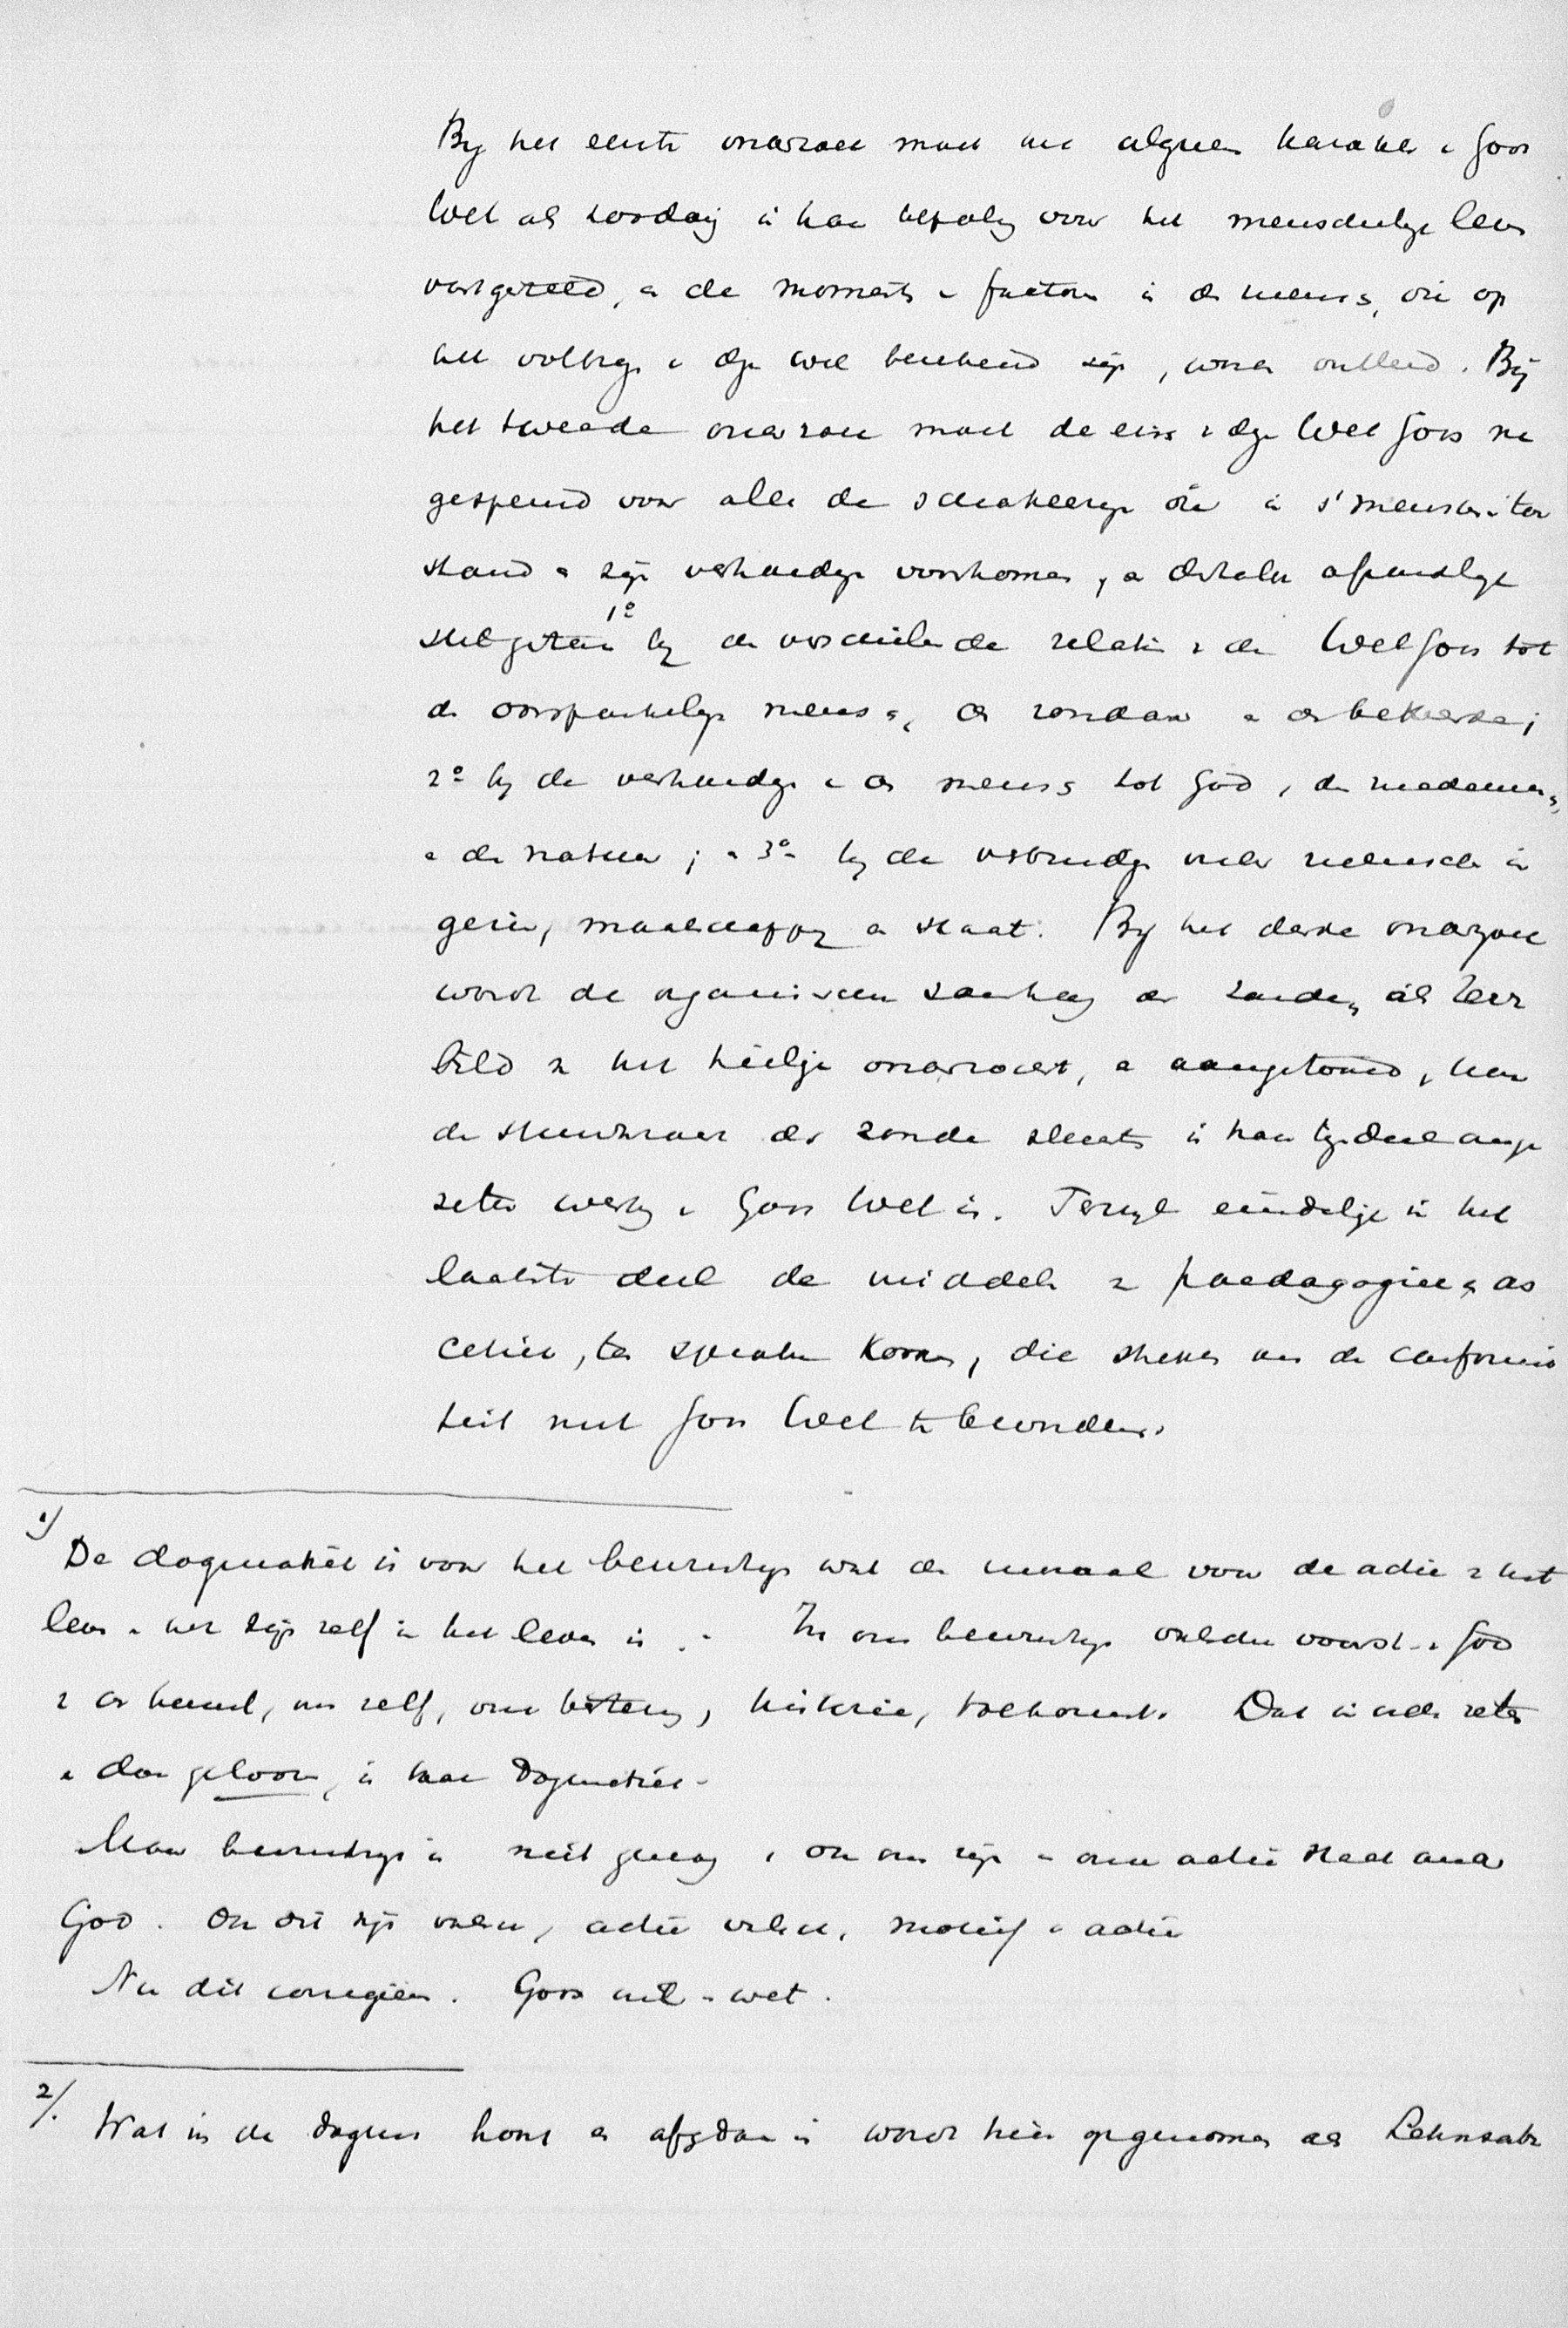 By het eerste onderzoek moet het algemeen karakter v Gods
Wet als zoodanig in haar bepaling voor het menschelijke leven
vastgesteld, en de momenten en factoren in den mens, die op
het volbrengen v deze wet berekend zijn, worden ontleed. Bij
het tweede onderzoek moet de eisch v deze Wet Gods na
gespeurd voor alle de schakeeringen die in s'menschen toe
stand en zijn verhoudingen voorkomen, en derhalve afzonderlijk
stilgestaan 1º by de verschillende relatie v de Wet Gods tot
de oorspronkelijke mens, de zondaar en de bekeerde;
2º by de verhouding v de mens tot God, de medemens,
en de natuur; en 3º by de verbinding veler menschen in
gezin, maatschappy en staat. By het derde onderzoek
wordt de organischen samenhang der zonden, als keer
beeld v het heilige onderzocht, en aangetoond, hoe
de stuwkracht der zonde slechts in haar tegendeel omge
zette werking v Gods Wet is. Terwijl eindelijk in het
laatste deel de middelen v paedagogiek en as
cetiek, ter sprake komen, die strekken om de conformi
teit met Gods Wet te bevorderen.
1) De dogmatiek is voor het bewustzijn wat de moraal voor de actie v het
leven en het zijn zelf in het leven is. - In ons bewustzijn voorst. v God
v de hemel, ons zelf, onze bestemming, historie, toekomst. Dat in orde zetten
en dan gelooven, is taak Dogmatiek -
Maar bewustzijn is niet genoeg, ook ons zijn en onze actie staat onder
God. Ook dit zijn valsch, actie valsch, motief v actie
Nu dit corrigeeren. Gods wil en wet.
2). Wat in de dogmat. komt en afgedaan is wordt hier opgenomen als Lehnsatz